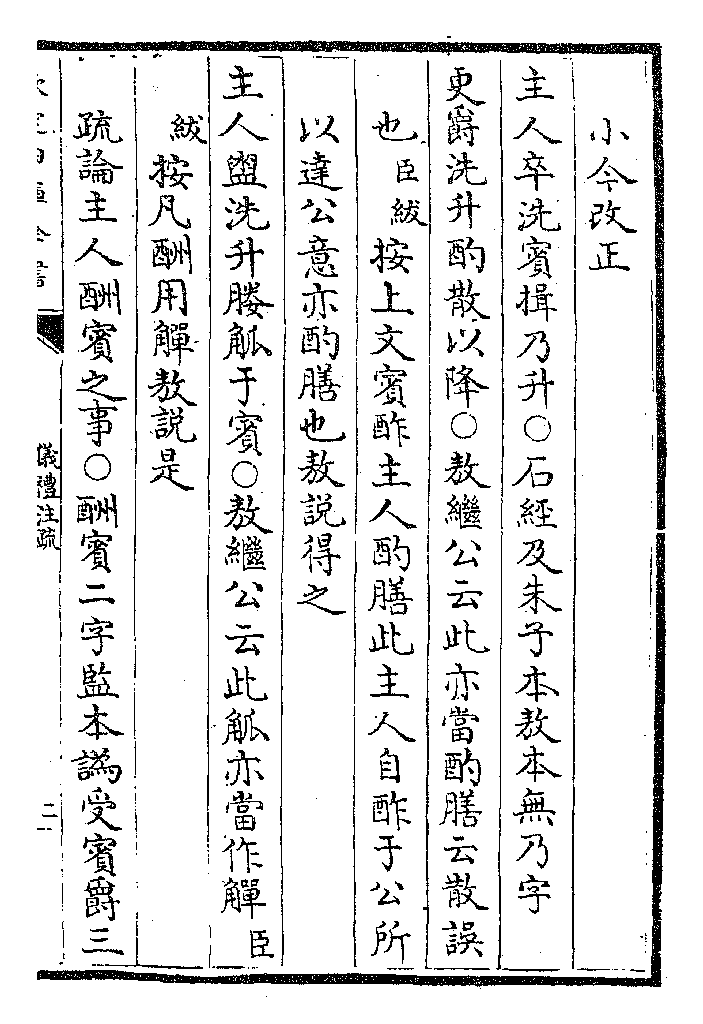 小今改正
主人卒洗賓揖乃升○石經及朱子本敖本無乃字
更爵洗升酌散以降○敖繼公云此亦當酌膳云散誤
也臣紱按上文賓酢主人酌膳此主人自酢于公所
以達公意亦酌膳也敖説得之
主人盥洗升媵觚于賓○敖繼公云此觚亦當作觶臣
紱按凡酬用觶敖説是
疏論主人酬賓之事○酬賓二字監本譌受賓爵三
儀禮注疏
二